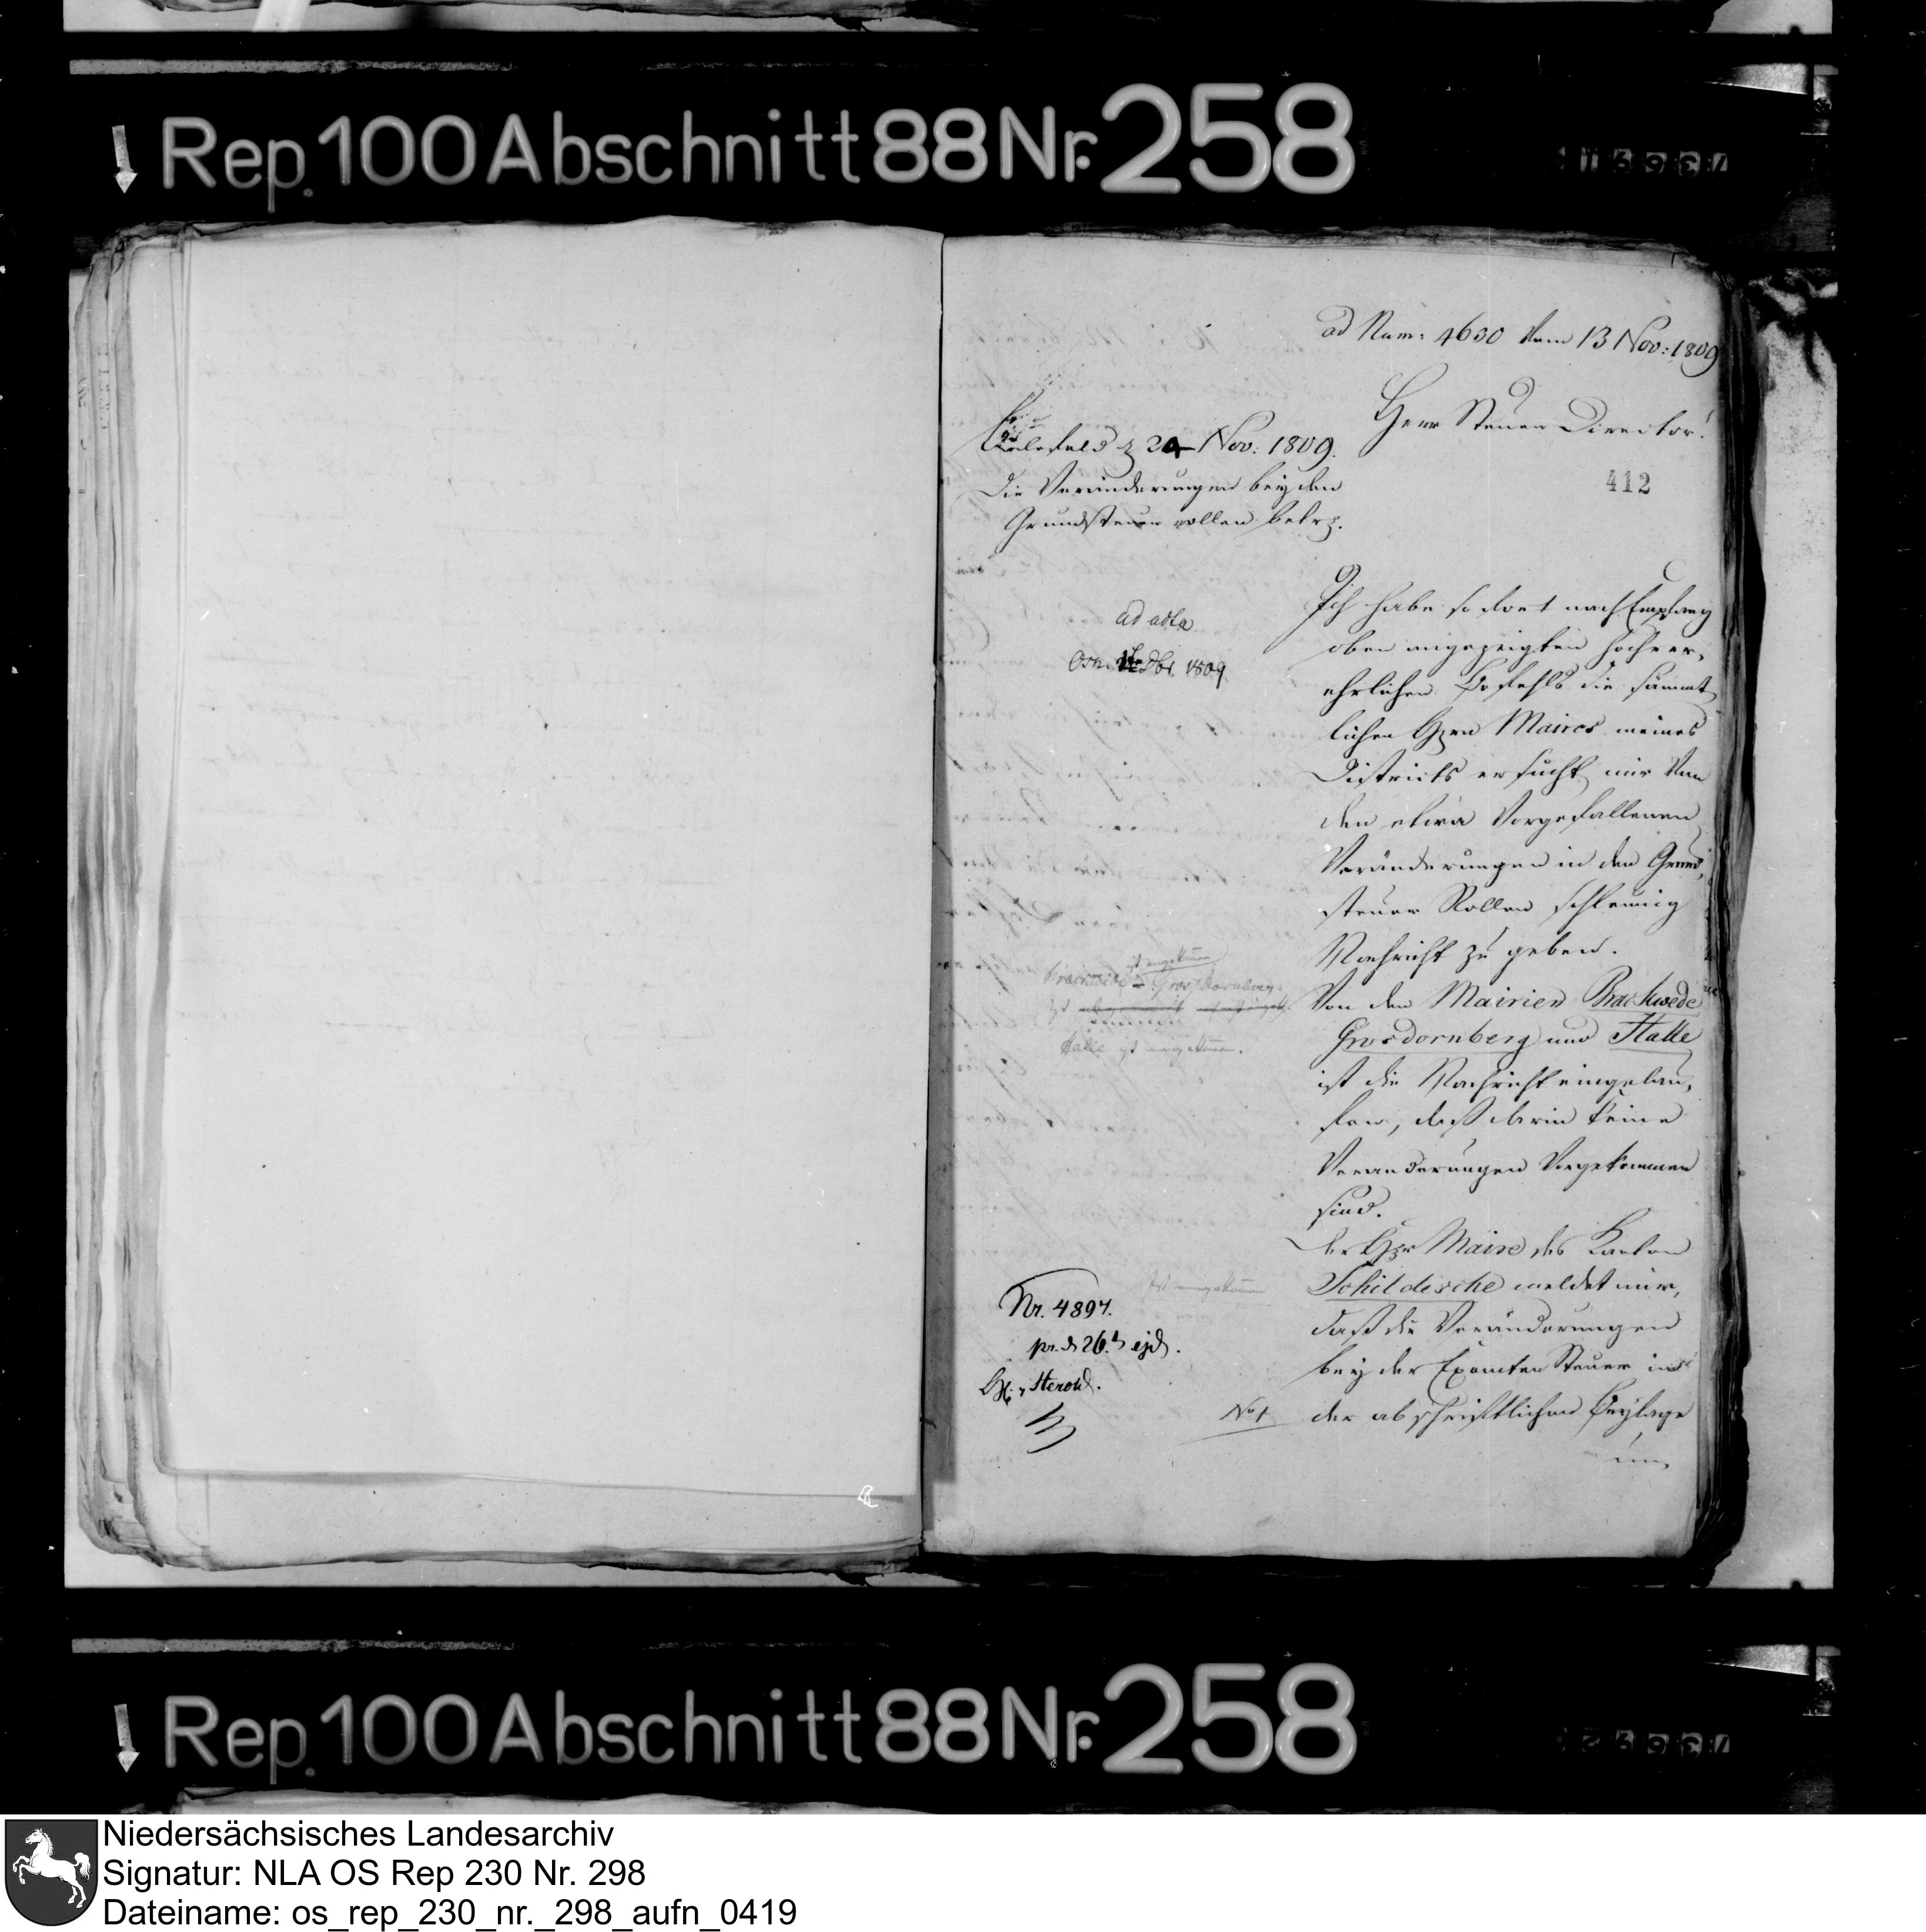 Rep. 100 Abschnitt 88 Nr. 258
ad Num: 4630 vom 13 Nov: 1809
Herr Steuer Director!
Bielefeld d 24 Nov: 1809.
Die Veränderungen bey den
Grundsteuer rollen betr.
412
ad acta
Osn. Dbr. 1809
Ich habe sofort nach Empfang
oben angezeigten hochver-
ehrlichen Befehls die sämmt
lichen Hrn Maires meines
Districts ersucht mir von
den etwa vorgefallenen
Veränderungen in den Grund-
steuer Rollen schleunig
Nachricht zu geben.
Von den Mairien Brackwede
Grosdornberg und Halle
ist die Nachricht eingelau-
fen, daß darin keine
Veranderungen vorgekommen
sind.
Der Hr Maire des Kanton
Schildesche meldet mir,
daß die Veränderungen
bey der Exemten Steuer in
der abschriftlichen Beylage
Brackwede = Grosdornberg
Halle ist eingekommen.
ist eingekommen
Nr. 4897.
pr. d 26t ejd.
H. Herold.
No 1
Rep. 100 Abschnitt 88 Nr. 258
Niedersächsisches Landesarchiv
Signatur: NLA OS Rep 230 Nr. 298
Dateiname: os_rep_230_nr._298_aufn_0419